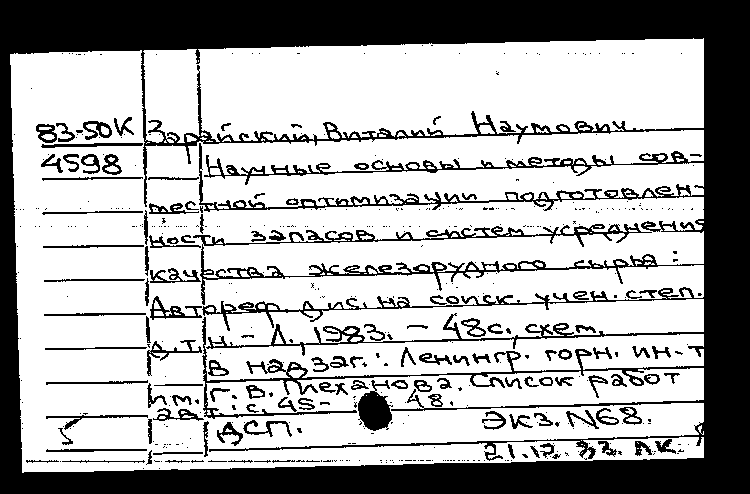 83-50К Зарайский, Виталий Наумович.
4598 Научные основы и методы сов-
местной оптимизации подготовлен-
ности запасов и систем усреднения
качества железорудного сырья:
Автореф. дис. на соиск. учен. степ.
д.т.н. - Л., 1983. - 48с., схем.
В надзаг.: Ленингр. горн. ин-т
им. Г. В. Плеханова. Список работ
авт.: с. 45-48.
ДСП. Экз. N68.
21.12.83. ЛК.